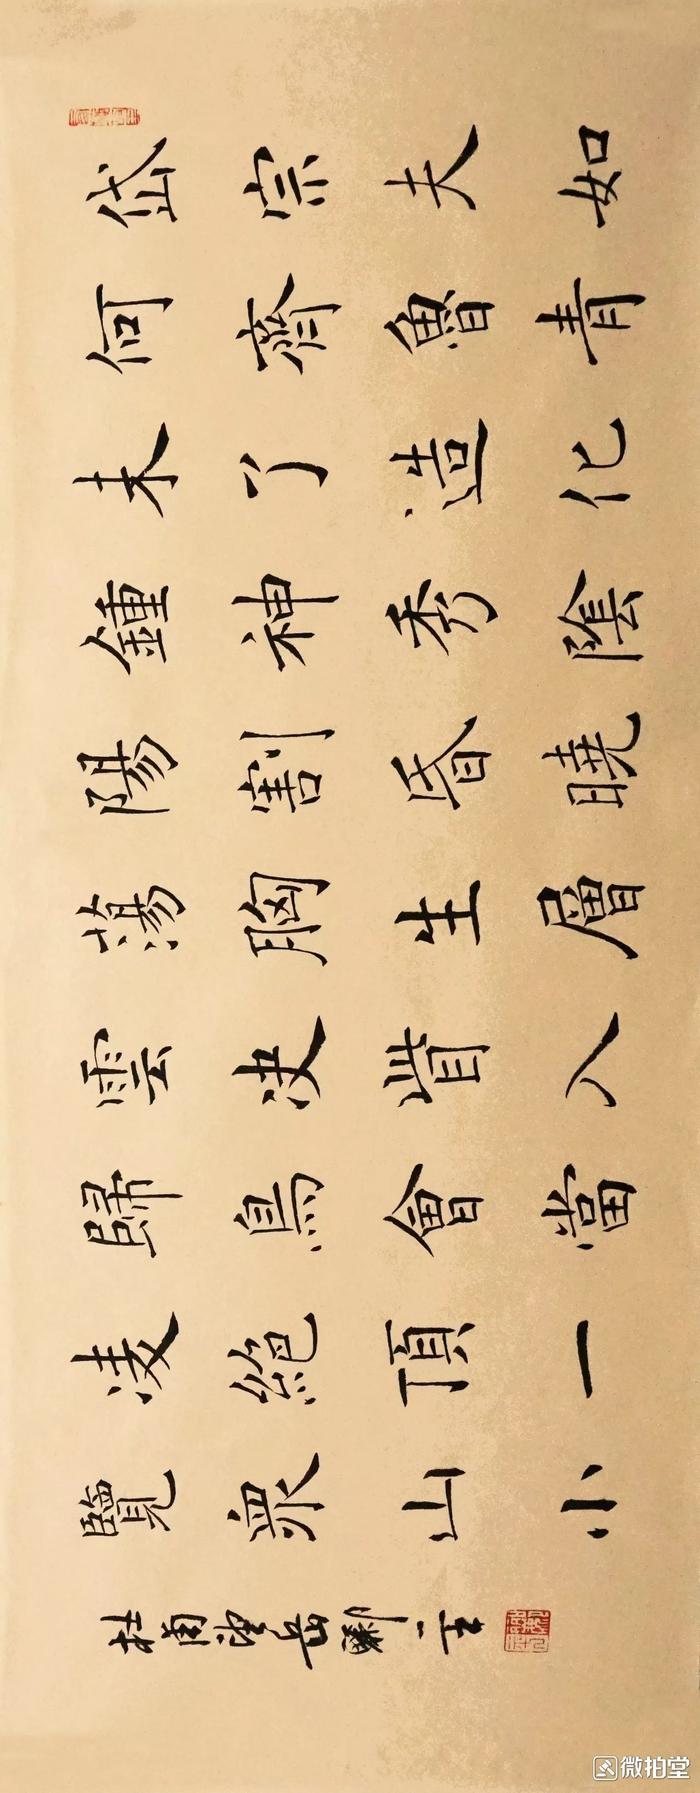 岱宗夫如
何齊魯青
未了造化
鍾神秀陰
陽割昏曉
蕩胸生層
雲決眥入
歸鳥會當
凌絶頂一
覽眾山小
杜甫望岳
微拍堂